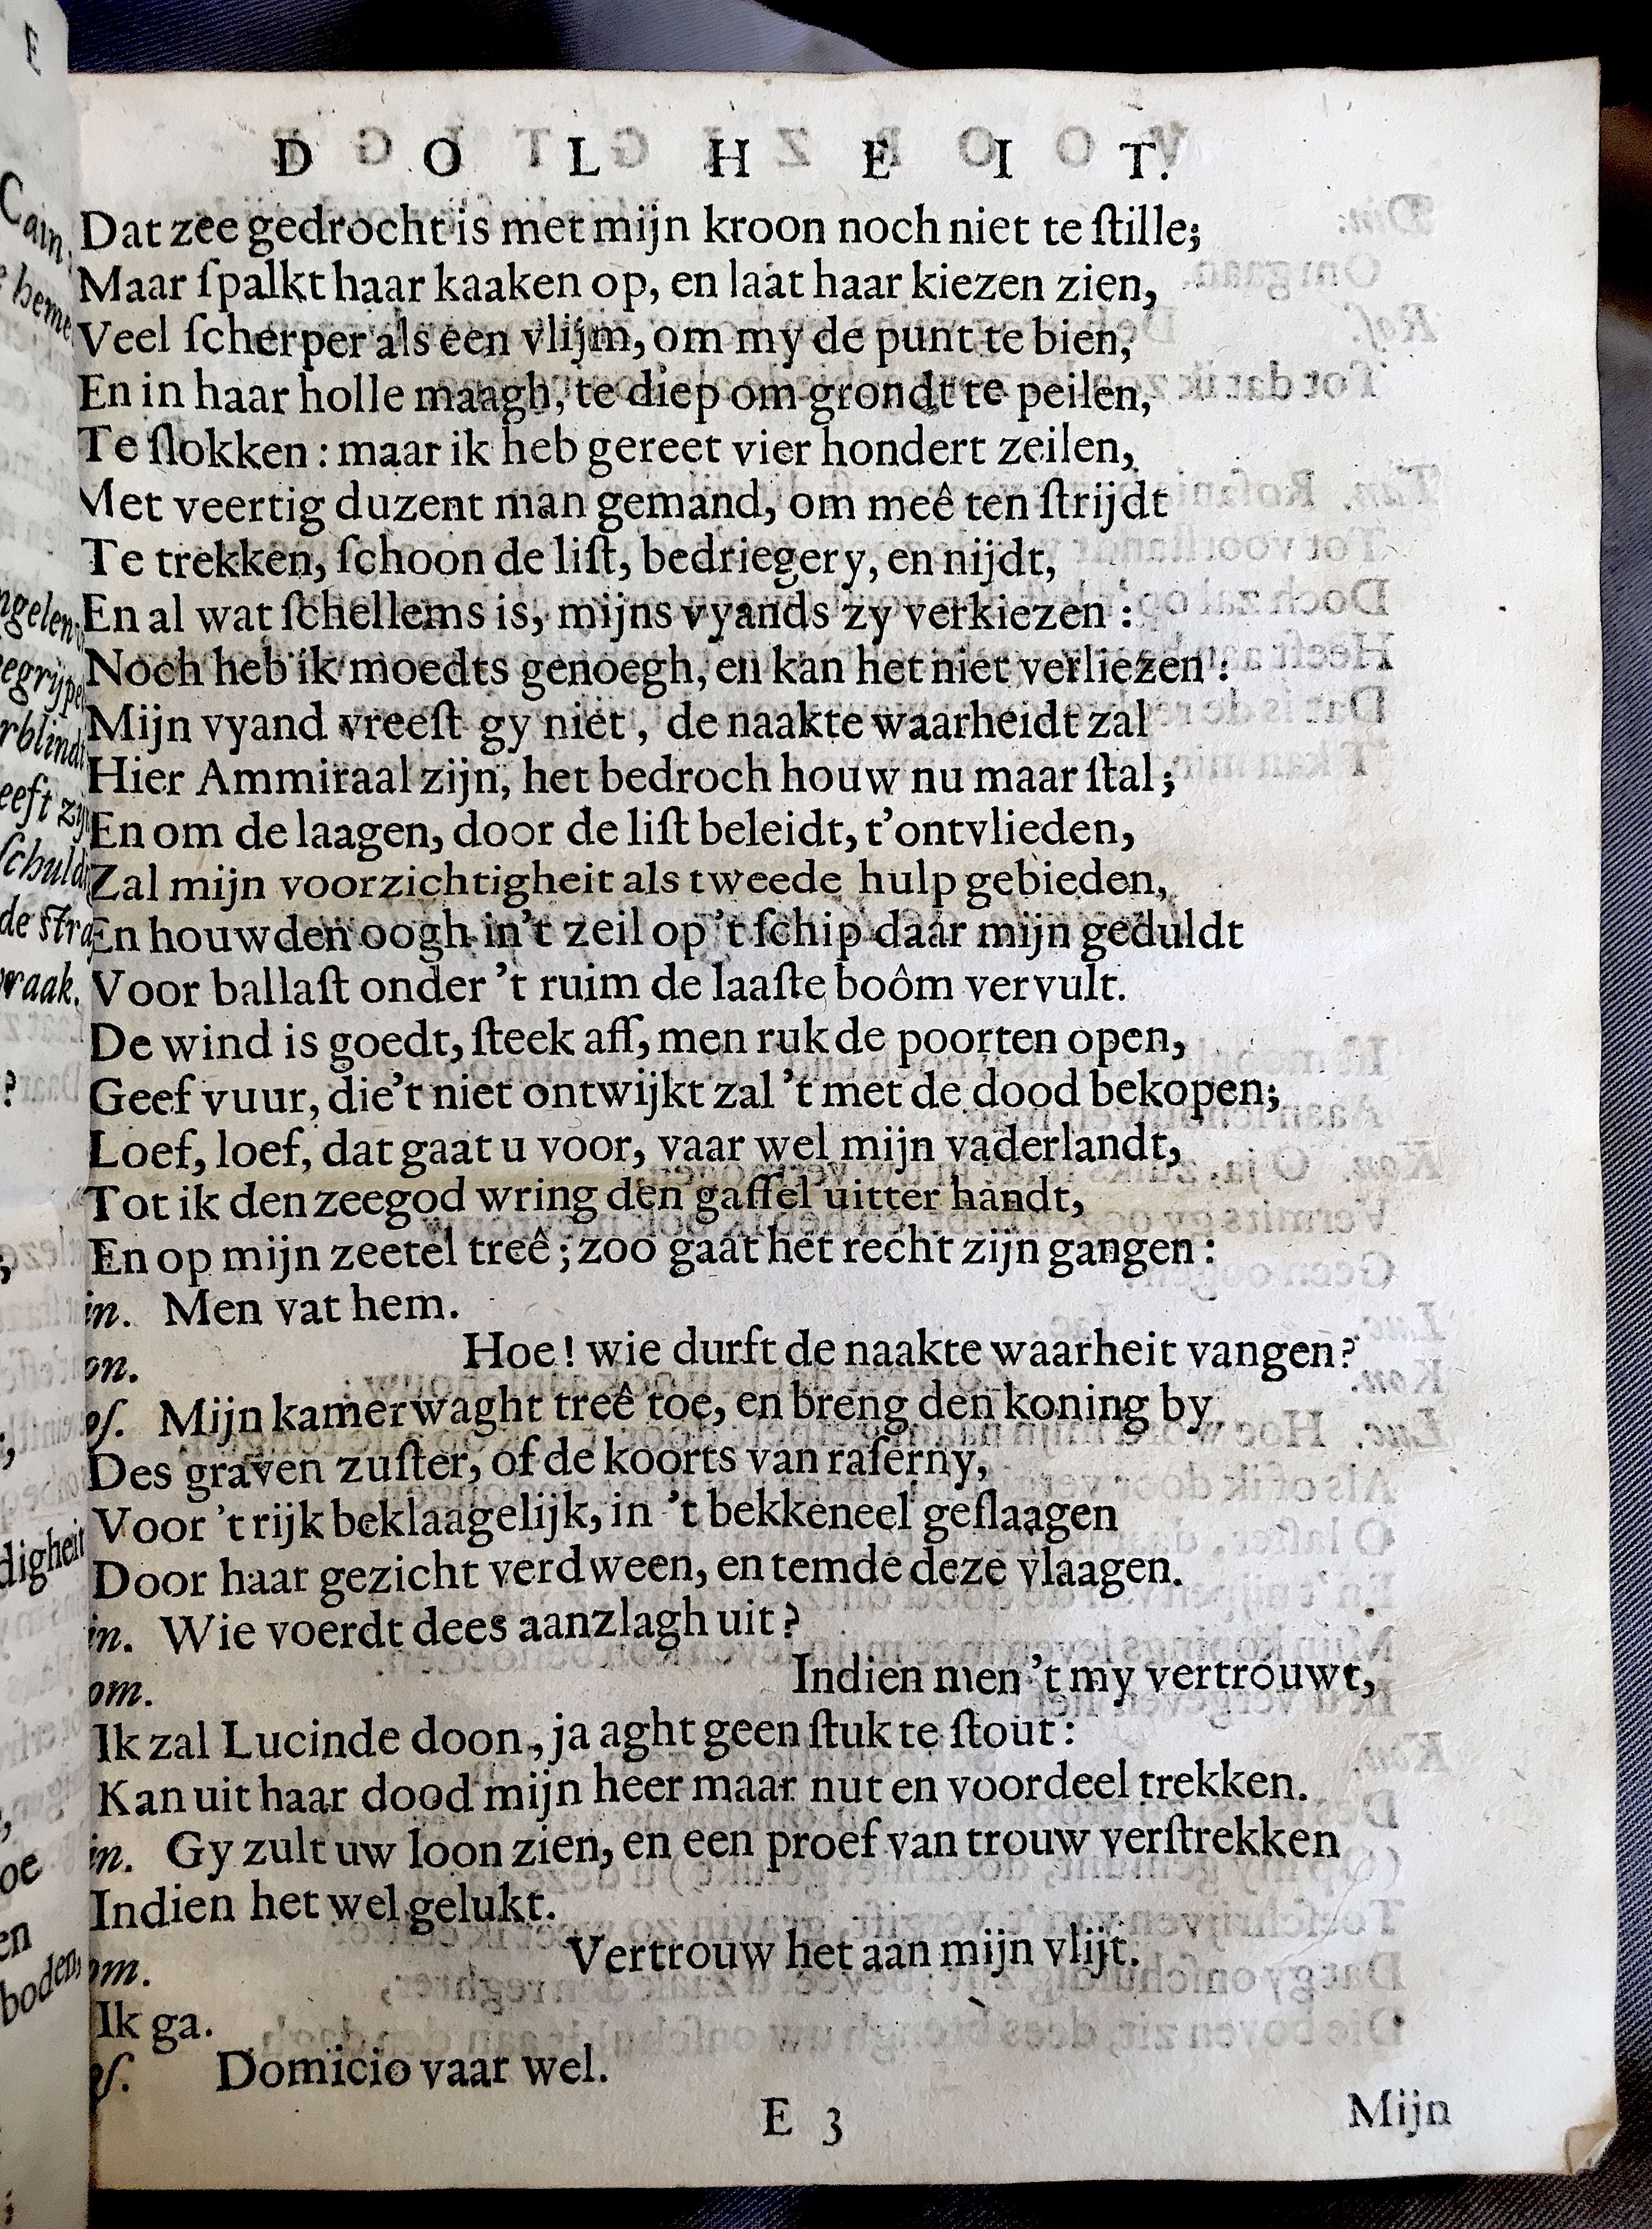 D O L H E I T.
Dat zee gedrocht is met mijn kroon noch niet te ſtille;
Maar ſpalkt haar kaaken op, en laat haar kiezen zien,
Veel ſcherper als een vlijm, om my de punt te bien,
En in haar holle maagh, te diep om grondt te peilen,
Te ſlokken : maar ik heb gereet vier hondert zeilen,
Met veertig duzent man gemand, om meê ten ſtrijdt
Te trekken, ſchoon de liſt, bedriegery, en nijdt,
En al wat ſchellems is, mijns vyands zy verkiezen :
Noch heb ik moedts genoegh, en kan het niet verliezen :
Mijn vyand vreeſt gy niet, de naakte waarheidt zal
Hier Ammiraal zijn, het bedroch houw nu maar ſtal;
En om de laagen, door de liſt beleidt, t'ontvlieden,
Zal mijn voorzichtigheit als tweede hulp gebieden,
En houwden oogh in't zeil op 't ſchip daar mijn geduldt
Voor ballaſt onder 't ruim de laaſte boôm vervult.
De wind is goedt, ſteek aff, men ruk de poorten open,
Geef vuur, die't niet ontwijkt zal 't met de dood bekopen;
Loef, loef, dat gaat u voor, vaar wel mijn vaderlandt,
Tot ik den zeegod wring den gaffel uitter handt,
En op mijn zeetel treê; zoo gaat het recht zijn gangen :
in. Men vat hem.
on. Hoe! wie durft de naakte waarheit vangen?
oſ. Mijn kamerwaght treê toe, en breng den koning by
Des graven zuſter, of de koorts van raſerny,
Voor 't rijk beklaagelijk, in 't bekkeneel geſlaagen
Door haar gezicht verdween, en temde deze vlaagen.
in. Wie voerdt dees aanzlagh uit?
om. Indien men 't my vertrouwt,
Ik zal Lucinde doon, ja aght geen ſtuk te ſtout :
Kan uit haar dood mijn heer maar nut en voordeel trekken.
in. Gy zult uw loon zien, en een proef van trouw verſtrekken
Indien het wel gelukt.
om. Vertrouw het aan mijn vlijt.
Ik ga.
oſ. Domicio vaar wel.
E 3
Mijn